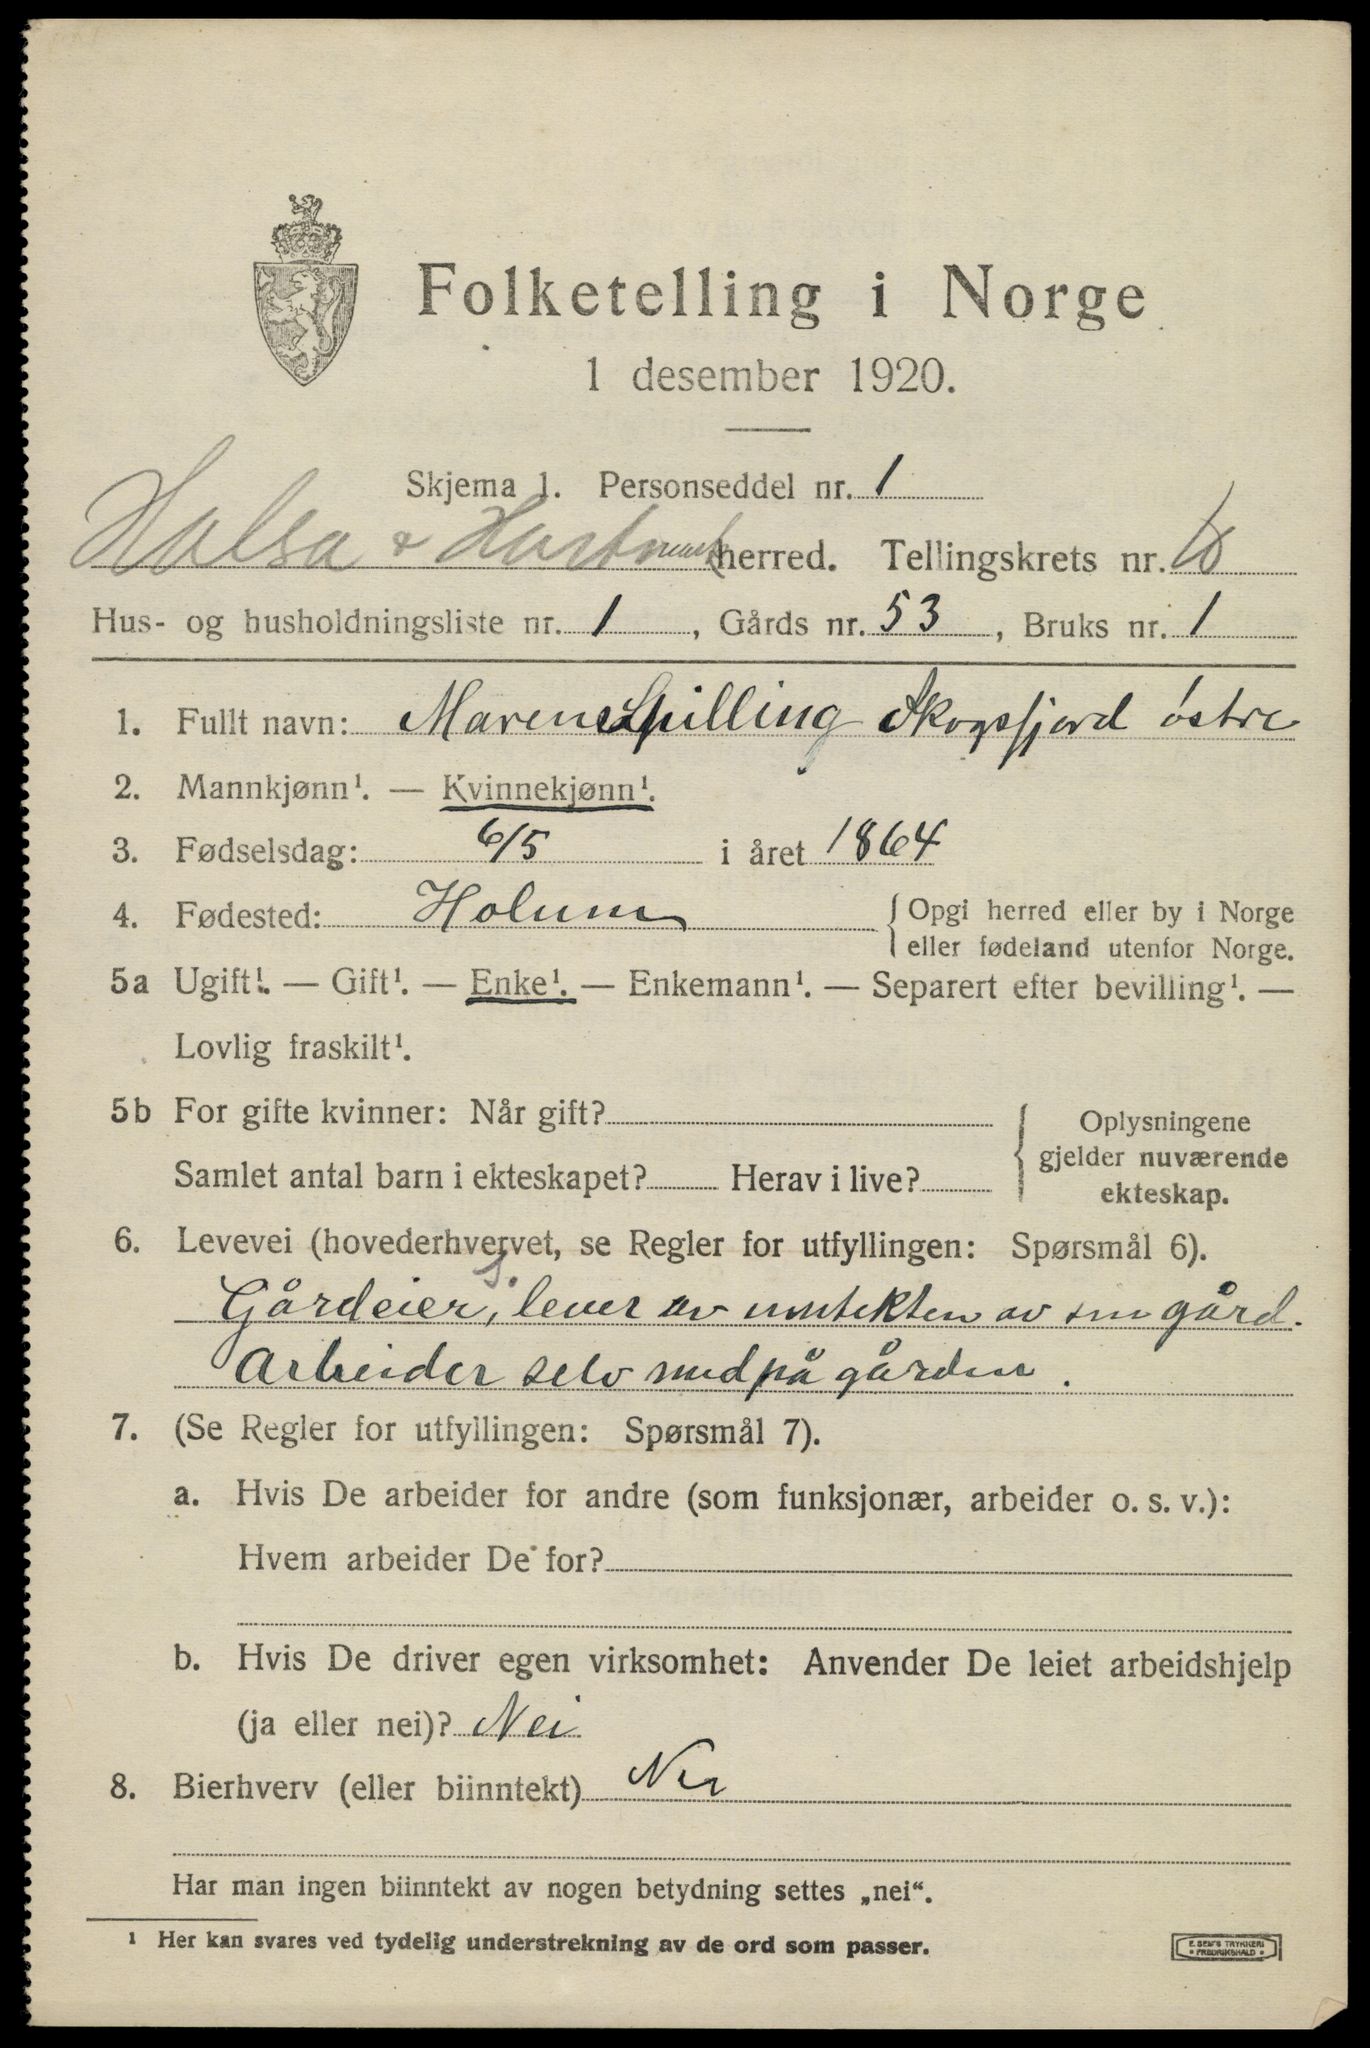 Folketelling i Norge
1 desember 1920.
Skjema 1. Personseddel nr. 1
Halsa & Hartmark herred. Tellingskrets nr. 10
Hus- og husholdningsliste nr. 1, Gårds nr. 53, Bruks nr. 1
1. Fullt navn: Maren Spilling Skogsfjord østre
2. Mannkjønn¹. — Kvinnekjønn¹.
3. Fødselsdag: 6/5 i året 1864
4. Fødested: Holum
{ Opgi herred eller by i Norge
eller fødeland utenfor Norge.
5a Ugift¹. — Gift¹. — Enke¹. — Enkemann¹. — Separert efter bevilling¹. —
Lovlig fraskilt¹.
5b For gifte kvinner: Når gift?
Samlet antal barn i ekteskapet? Herav i live?
{ Oplysningene
gjelder nuværende
ekteskap.
6. Levevei (hovederhvervet, se Regler for utfyllingen: Spørsmål 6).
Gårdeier, lever av inntekten av sin gård.
Arbeider selv med på gården.
7. (Se Regler for utfyllingen: Spørsmål 7).
a. Hvis De arbeider for andre (som funksjonær, arbeider o. s. v.):
Hvem arbeider De for?
b. Hvis De driver egen virksomhet: Anvender De leiet arbeidshjelp
(ja eller nei)? Nei
8. Bierhverv (eller biinntekt) Nei
Har man ingen biinntekt av nogen betydning settes „nei“.
¹ Her kan svares ved tydelig understrekning av de ord som passer.
E. SEM'S TRYKKERI
• FREDRIKSHALD •